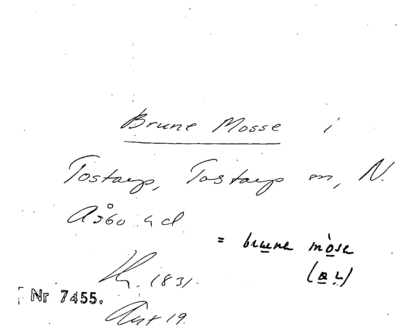 Brune Mosse i
Tostarp, Tostarp sn, N.
Åsbo hd
= brune mòse
(a.u.)
1831.
Nr 7455.
Avt 19.